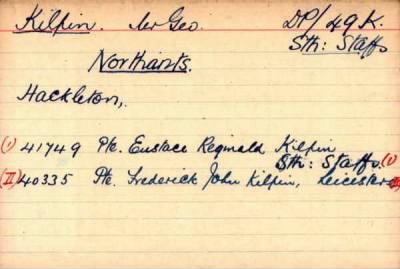 Kilpin. Mr Geo. DP/49K.
Sth: Staffs
Northants.
Hackleton,
(I) 41749 Pte. Eustace Reginald Kilpin
Sth: Staffs. (I)
(II) 40335 Pte. Frederick John Kilpin, Leicesters (II)